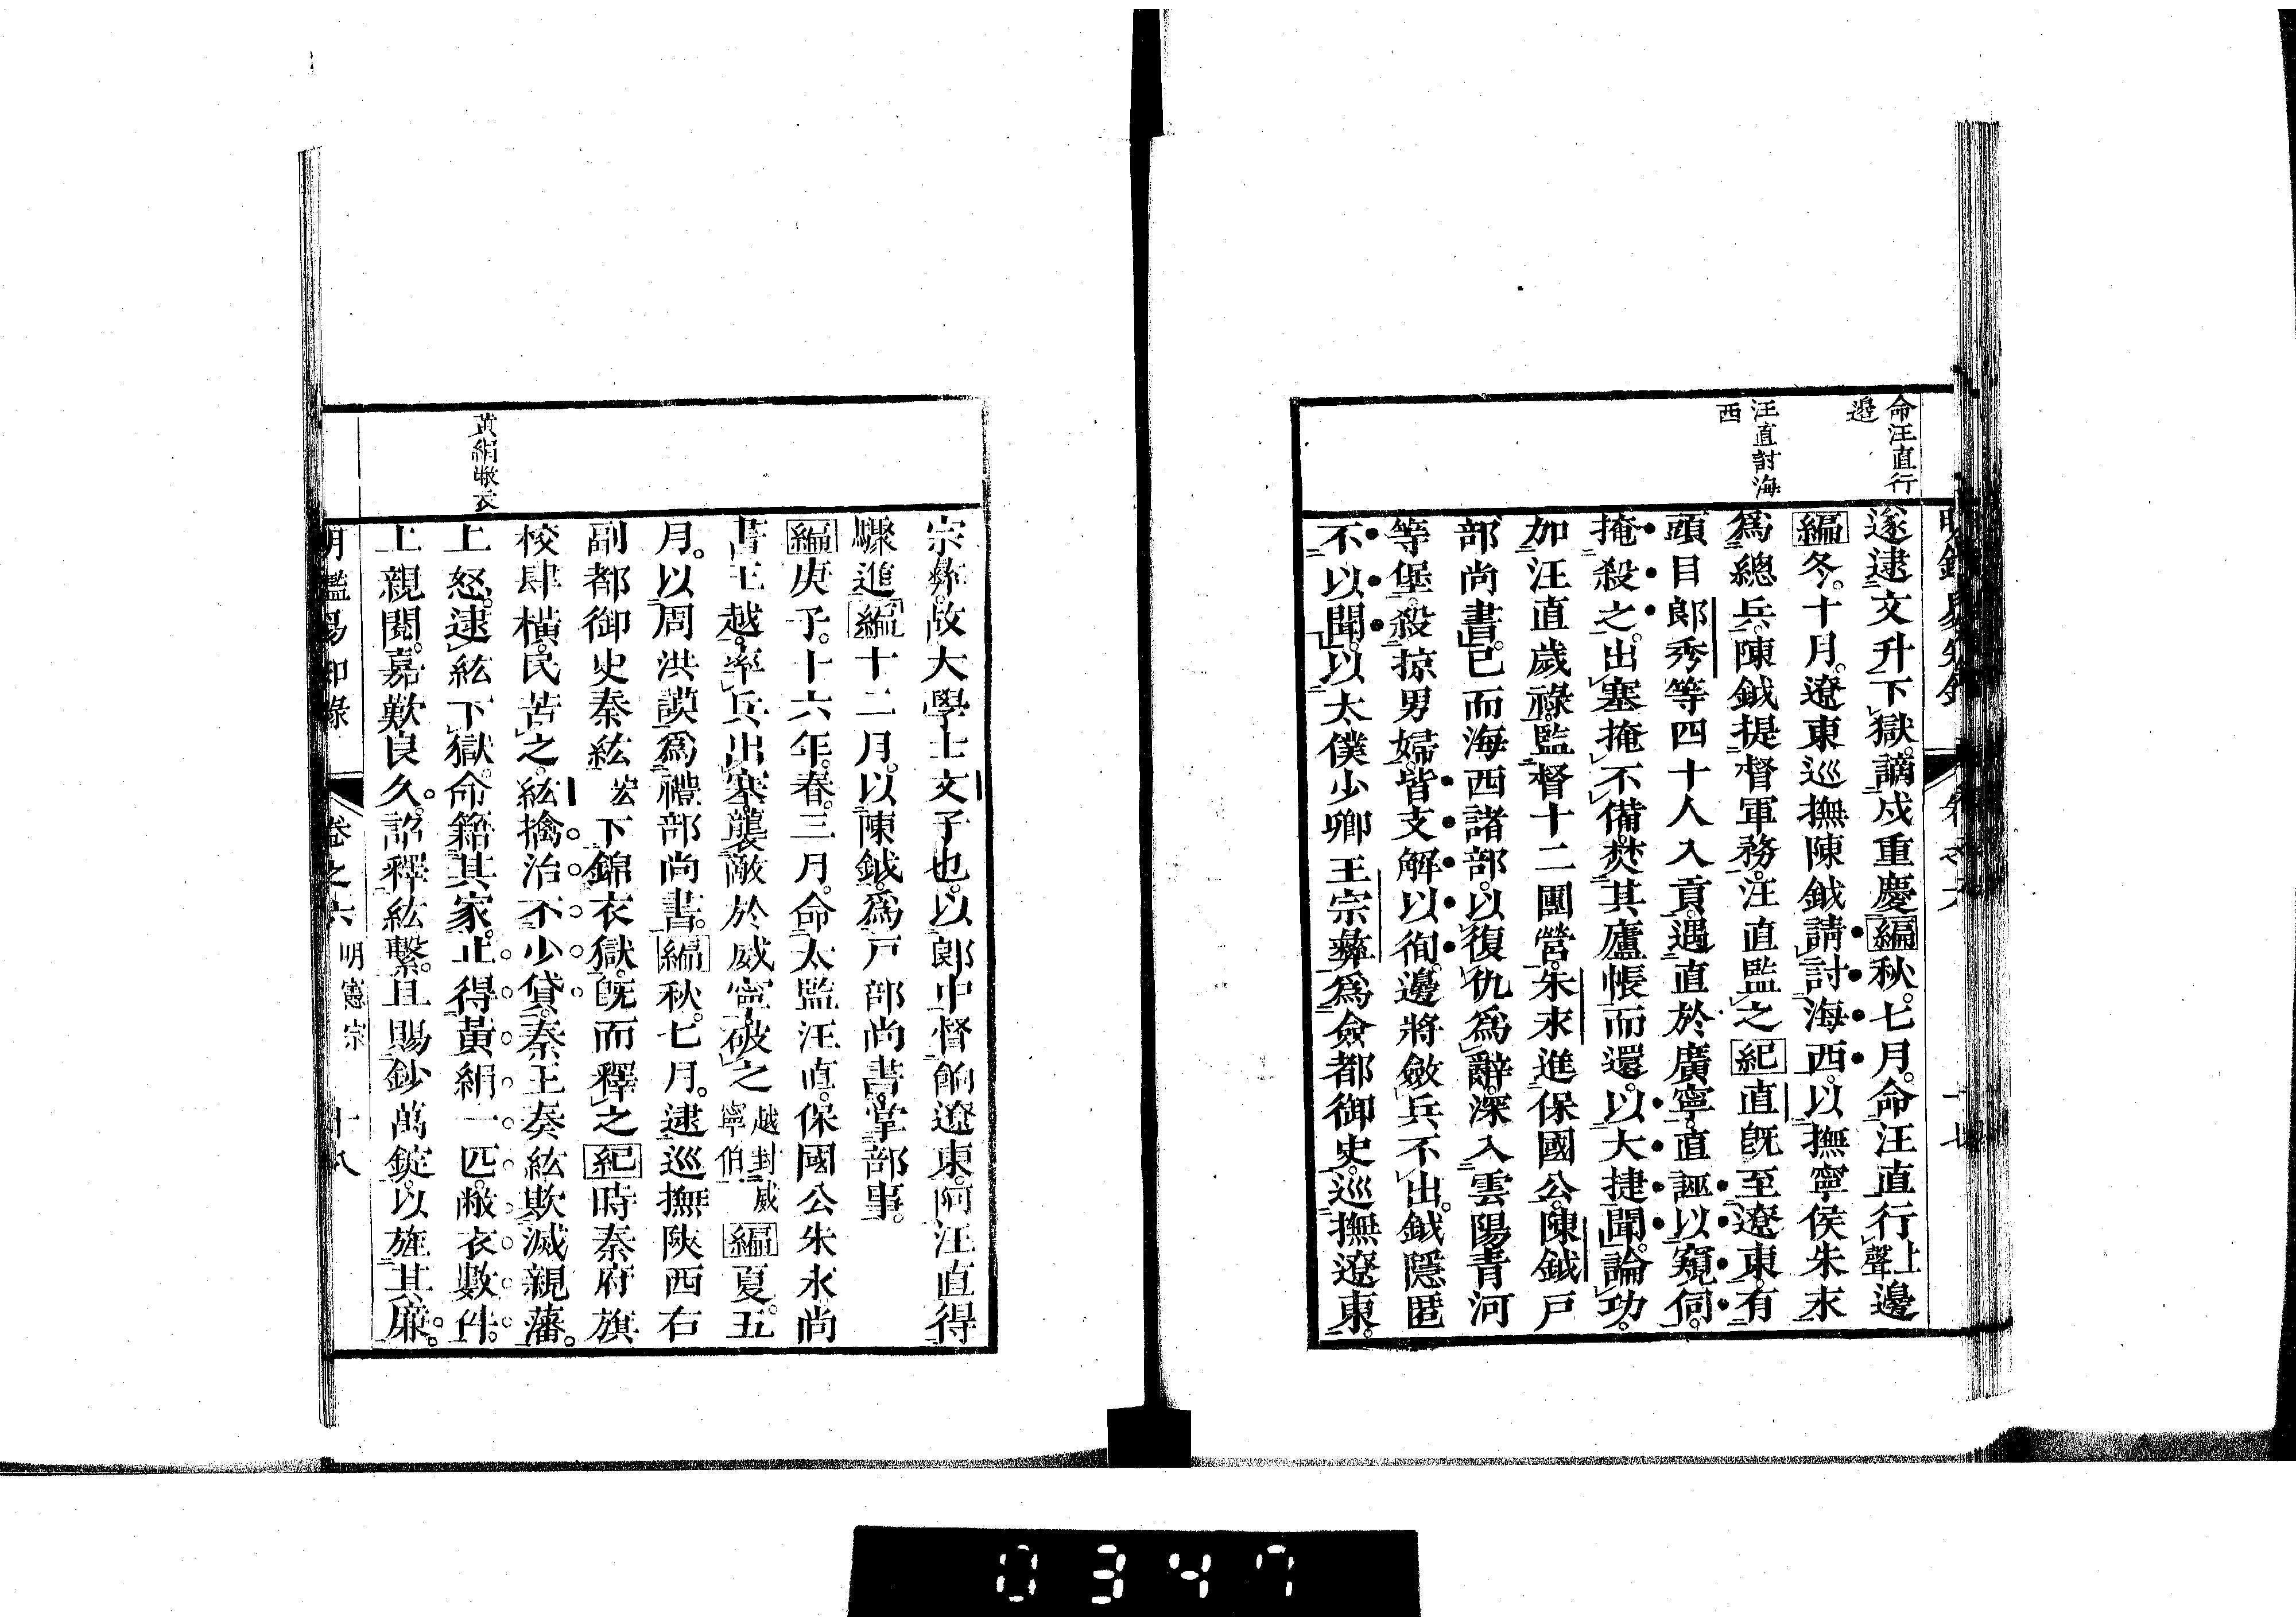 命汪直行
邊
汪直討海
西
遂逮文升下獄。謫戍重慶編秋。七月。命汪直行上聲邊
編冬。十月。遼東巡撫陳鉞請討海西。以撫寧侯朱永
爲總兵。陳鉞提督軍務。汪直監之紀直既至遼東。有
頭目郎秀等四十人入貢。遇直於廣寧。直誣以窺伺。
掩殺之。出塞掩不備。焚其廬帳而還。以大捷聞。論功。
加汪直歲祿。監督十二團營。朱永進保國公。陳鉞戸
部尚書。已而海西諸部。以復仇爲辭。深入雲陽青河
等堡。殺掠男婦。皆支解以徇。邊將斂兵不出。鉞隱匿
不以聞。以太僕少卿王宗彝爲僉都御史。巡撫遼東。
宗彝。故大學士文子也。以郎中督餉遼東。阿汪直得
驟進編十二月。以陳鉞。爲戸部尚書。掌部事。
編庚子。十六年。春。三月。命太監汪直。保國公朱永尚
書王越。率兵出塞。襲敵於威寧。破之越封威
寧伯編夏。五
月。以周洪謨爲禮部尚書。編秋。七月。逮巡撫陝西右
副都御史秦紘宏下錦衣獄。既而釋之紀時秦府旗
校肆橫。民苦之。紘擒治不少貸。秦王奏紘欺滅親藩。
上怒。逮紘下獄。命籍其家。止得黃絹一匹。敝衣數件。
上親閱。嘉歎良久。詔釋紘繫。且賜鈔萬錠。以旌其廉。
黃絹敝衣
明鑑易知錄
卷之六
明憲宗
十八
0347